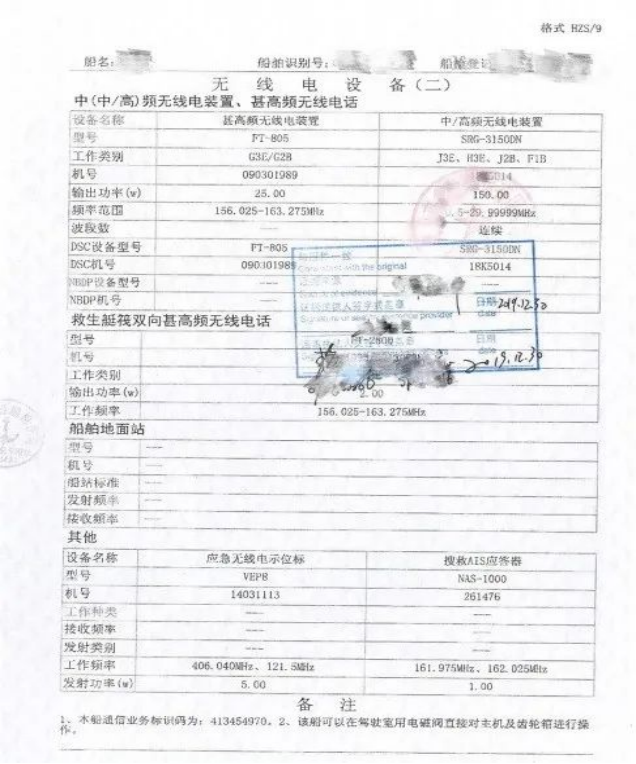 格式 HZS/9
船名:
船舶识别号:
船舶登记
无 线 电 设 备(二)
中(中/高)频无线电装置、甚高频无线电话
设备名称 甚高频无线电装置 中/高频无线电装置
型号 FT-805 SRG-3150DN
工作类别 G3E/G2B J3E、H3E、J2B、F1B
机号 090301989 18K5014
输出功率(w) 25.00 150.00
频率范围 156.025-163.275MHz 0.5-29.99999MHz
波段数 --- 连续
DSC设备型号 FT-805 SRG-3150DN
DSC机号 090301989 18K5014
NBDP设备型号 ---
NBDP机号 ---
with the original
日期 2019.12.30
date
provider
日期
date
2019.12.30
救生艇筏双向甚高频无线电话
型号
机号
工作类别
输出功率(w) 2.00
工作频率 156.025-163.275MHz
船舶地面站
型号 ---
机号 ---
船站标准 ---
发射频率 ---
接收频率 ---
其他
设备名称 应急无线电示位标 搜救AIS应答器
型号 VEP8 NAS-1000
机号 14031113 261476
工作种类 --- ---
接收频率 --- ---
发射类别 --- ---
工作频率 406.040MHz、121.5MHz 161.975MHz、162.025MHz
发射功率(w) 5.00 1.00
备 注
1、本船通信业务标识码为:413454970。2、该船可以在驾驶室用电磁阀直接对主机及齿轮箱进行操
作。